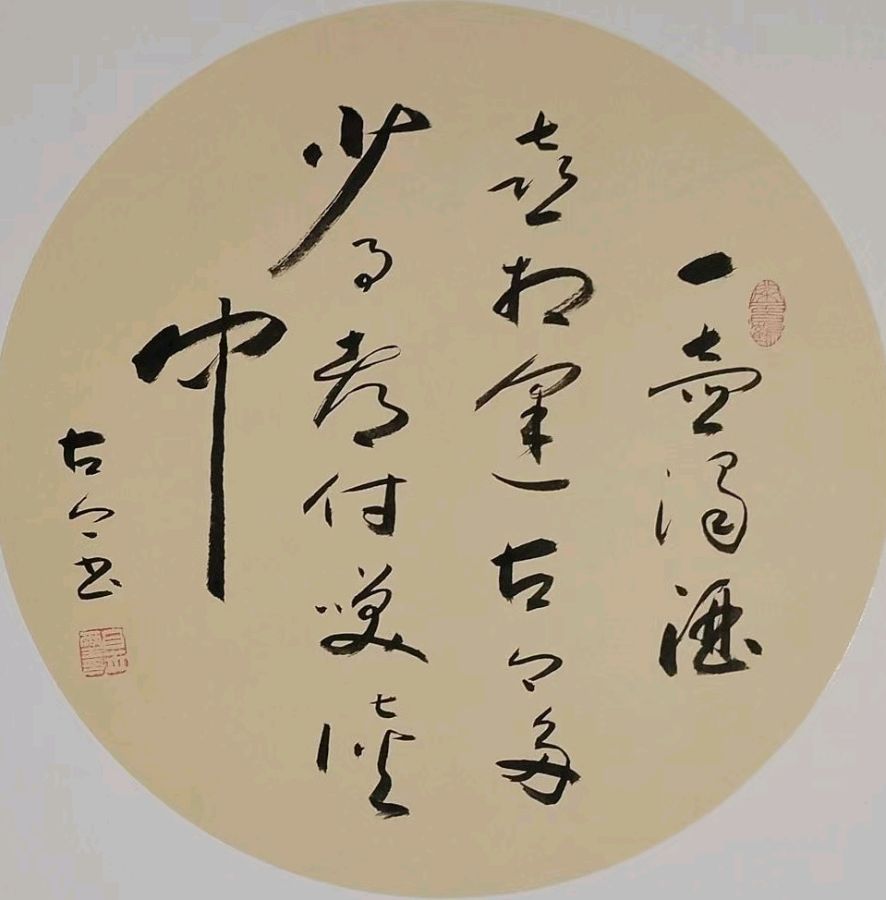 一壺濁酒
喜相逢古今多
少事都付笑談
中
古今书